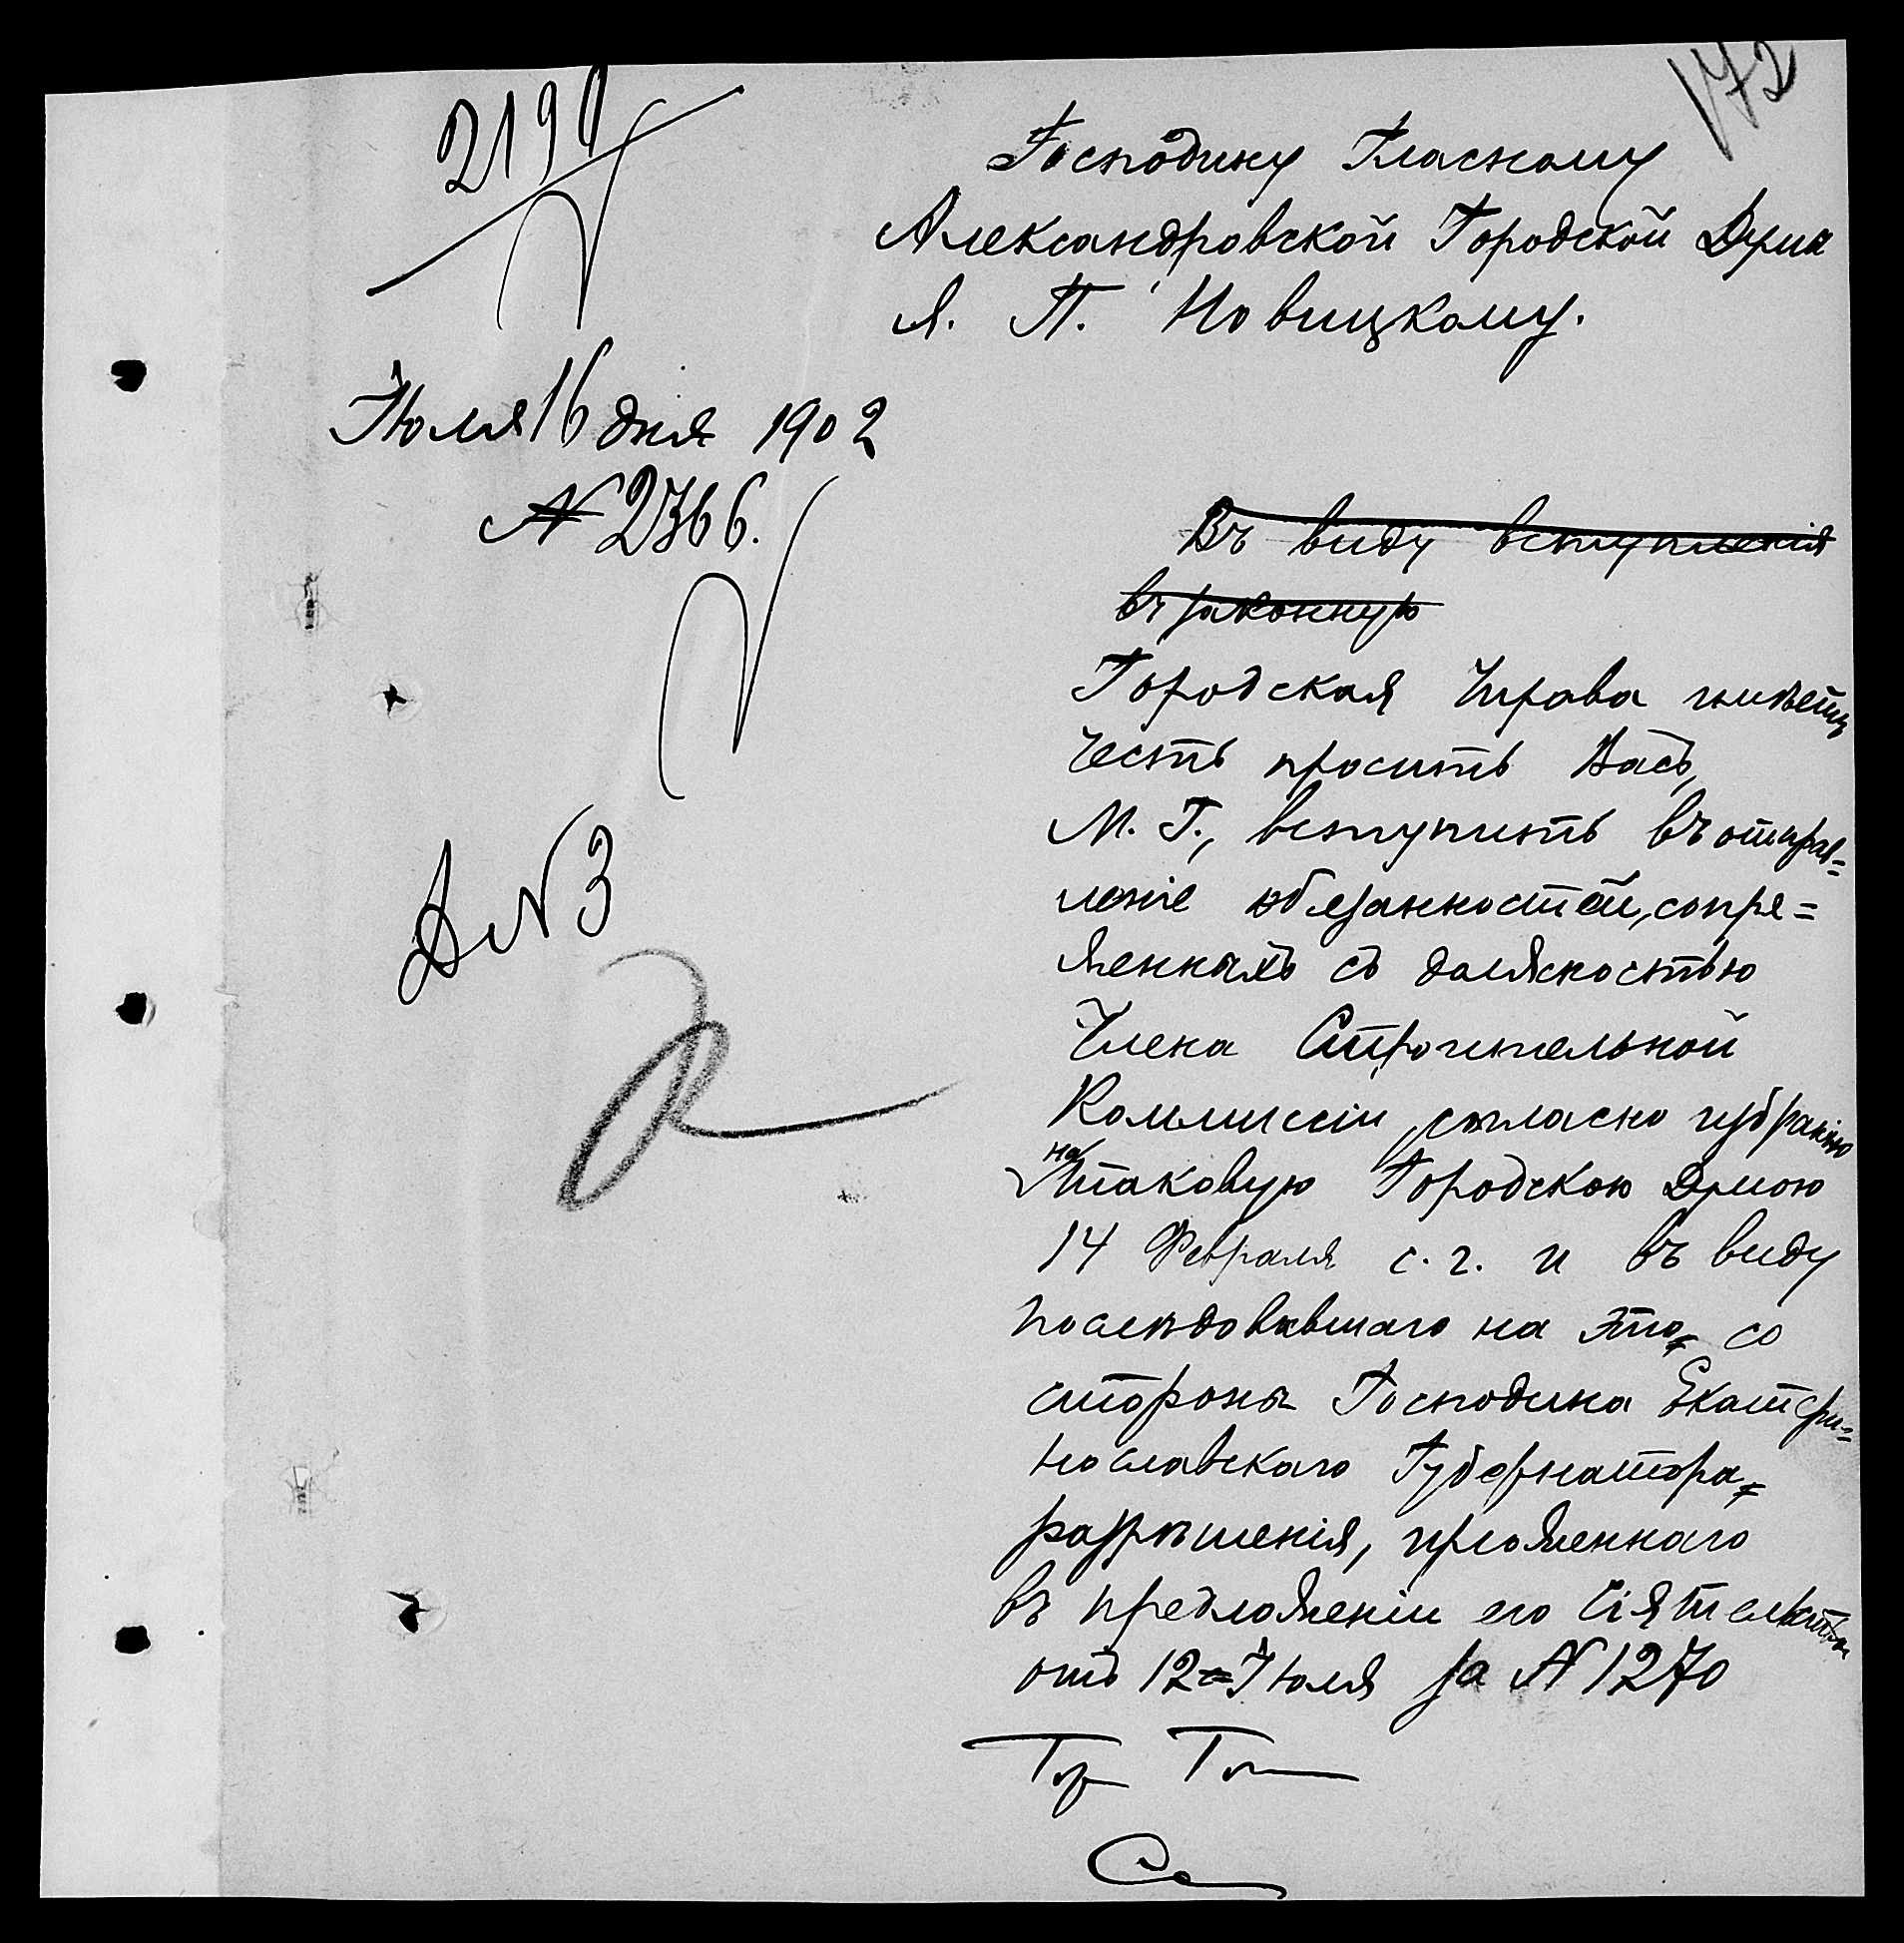 172
2190
Господину Гласному
Александровской Городской Думы
Я. П. Новицкому.
Іюля 16 дня 1902
№ 2366.
Въ виду вступленія
въ законную
Городская Управа имѣетъ
честь просить Васъ,
М. Г., вступить въ отправ=
леніе обязанностей, сопря=
женныхъ съ должностью
Члена Строительной
Коммиссіи, согласно избранію
на таковую Городскою Думою
14 Февраля с. г. и въ виду
послѣдовавшаго на это со
стороны Господина Екатери=
нославскаго Губернатора
разрѣшенія, изложеннаго
въ предложеніи его Сіятельства
отъ 12 Іюля за № 1270
Д № 3
Гор Го
Се